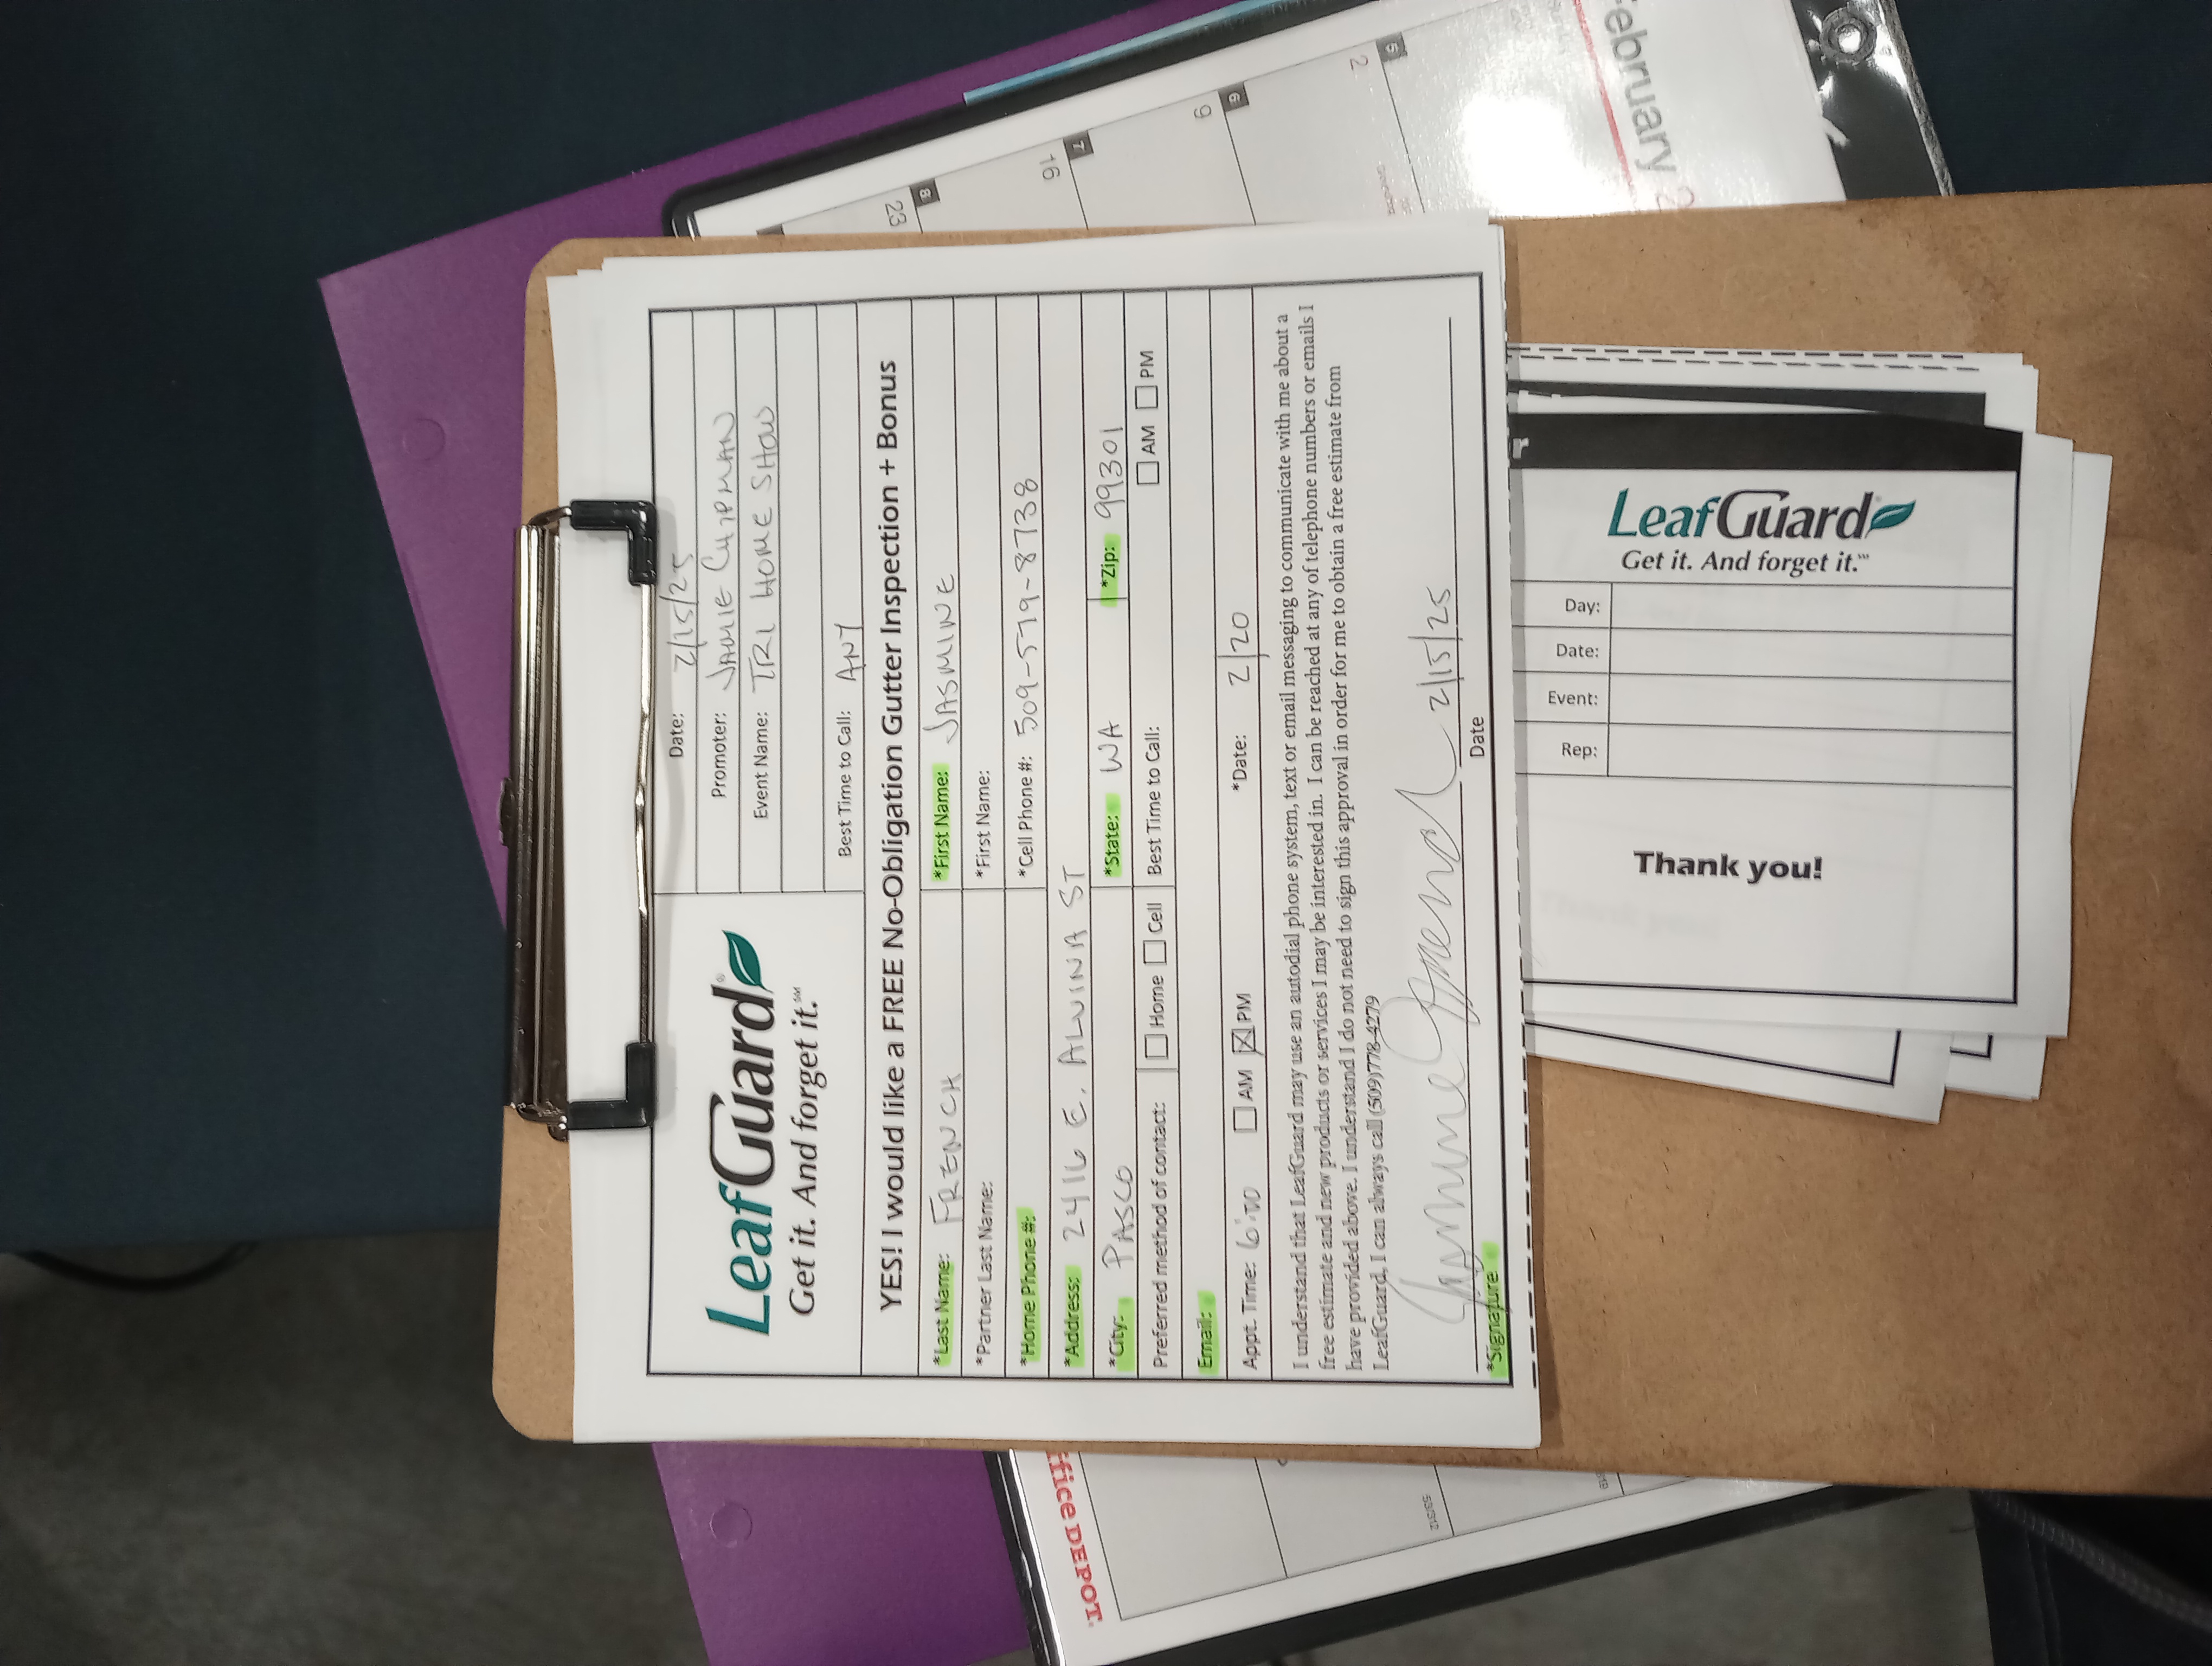 LeafGuard®
Get it. And forget it.℠
Date: 2/15/25
Promoter: JAMIE CHIPMAN
Event Name: TRI HOME SHOW
Best Time to Call: ANY
YES! I would like a FREE No-Obligation Gutter Inspection + Bonus
*Last Name: FRENCH *First Name: JASMINE
*Partner Last Name: *First Name:
*Home Phone #: *Cell Phone #: 509-579-8738
*Address: 2416 E. ALVINA ST
*City: PASCO *State: WA *Zip: 99301
Preferred method of contact: Home Cell Best Time to Call: AM PM
Email:
Appt. Time: 6:00 AM PM *Date: 2/20
I understand that LeafGuard may use an autodial phone system, text or email messaging to communicate with me about a
free estimate and new products or services I may be interested in. I can be reached at any of telephone numbers or emails I
have provided above. I understand I do not need to sign this approval in order for me to obtain a free estimate from
LeafGuard, I can always call (509)778-4279
Jasmine French 2/15/25
*Signature Date
LeafGuard®
Get it. And forget it.℠
Day:
Date:
Event:
Rep:
Thank you!
fice DEPOT.
ebruary
23
16
9
2
8
7
6
5